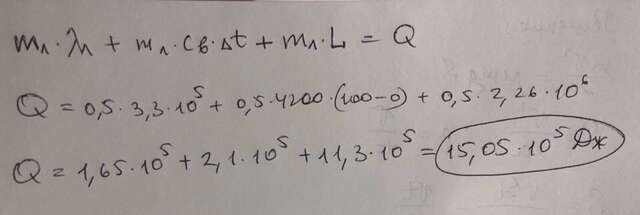 mл·λл + mл·Cв·Δt + mл·L = Q
Q = 0,5·3,3·10⁵ + 0,5·4200·(100-0) + 0,5·2,26·10⁶
Q = 1,65·10⁵ + 2,1·10⁵ + 11,3·10⁵ = 15,05·10⁵ Дж